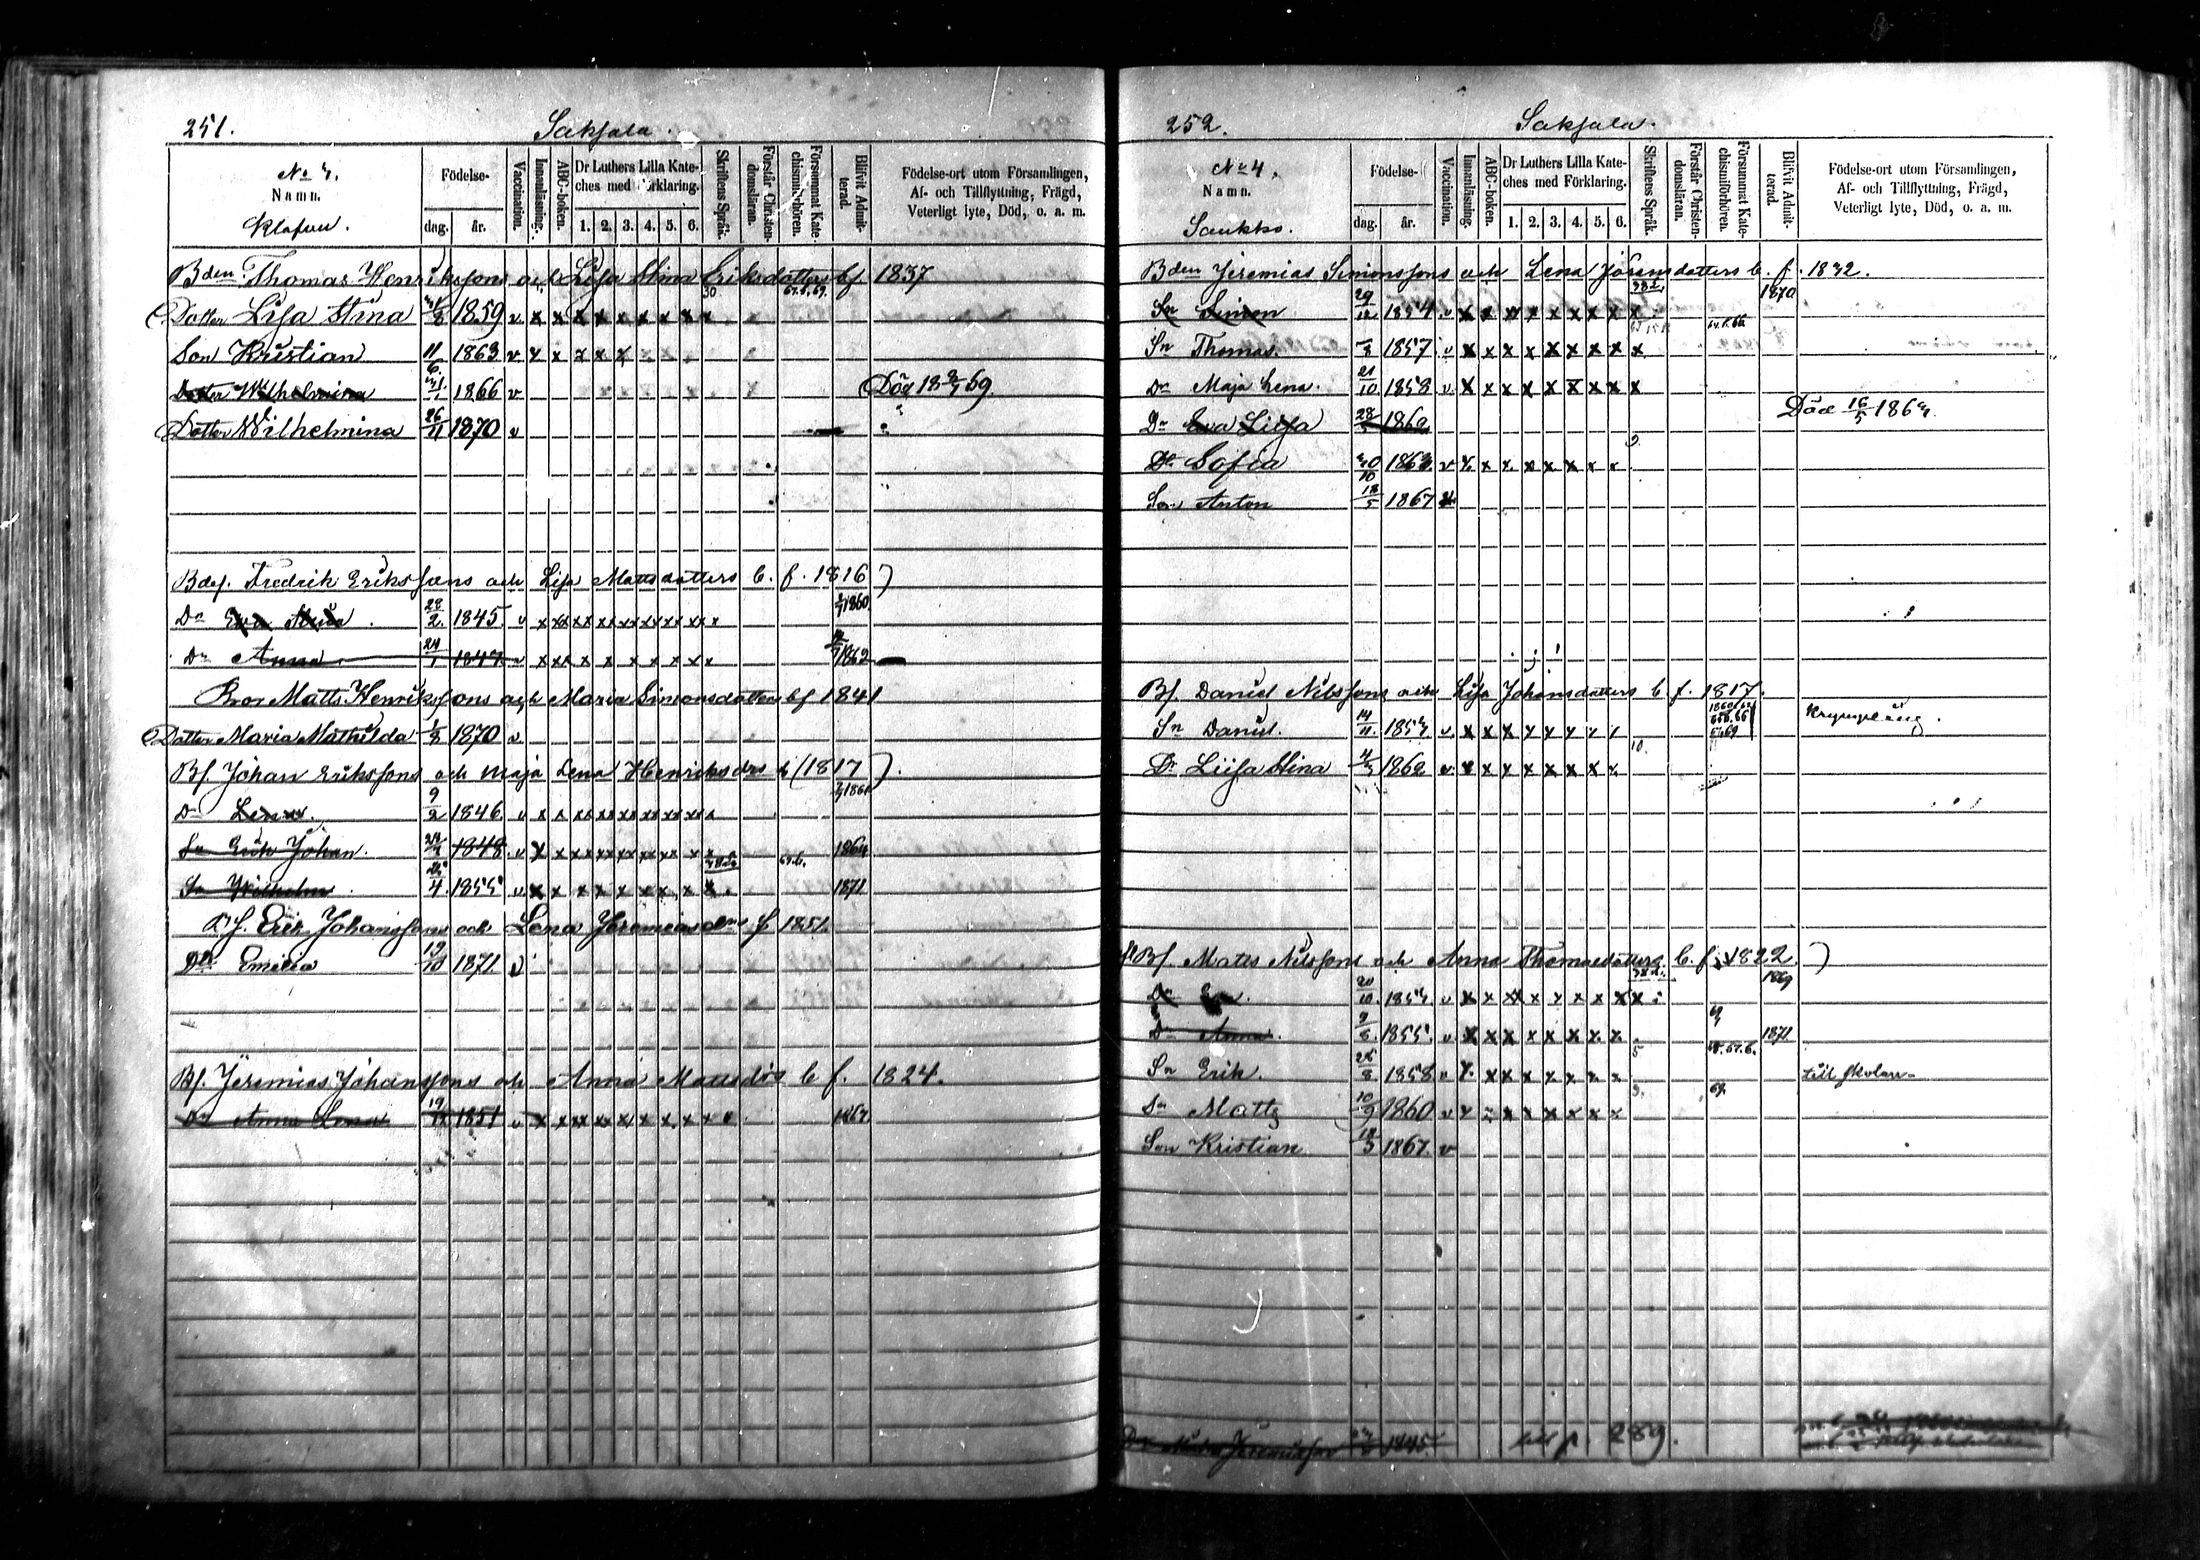 251. Saksala.
No
Namn.
Födelse-
dag. år.
Vaccination.
Innanläsning.
ABC-boken.
Dr Luthers Lilla Kate-
ches med Förklaring.
1. 2. 3. 4. 5. 6.
Skriftens Språk.
Förstår Christen-
domsläran.
Försummat Kate-
chismiförhören.
Blifvit Admit-
terad.
Födelse-ort utom Församlingen,
Af- och Tillflyttning, Frägd,
Veterligt lyte, Död, o. a. m.
Bden Thomas Henrikssons och Lisa Stina Eriksdotters bf 1837
Dotter Lisa Stina 1859 v x x x x x x x x x
Son Kristian 11/6 1863 v x x x x x
Dotter Wilhelmina 1866 v Död
Dotter Wilhelmina 26/11 1870 v
Fredrik Erikssons och Lisa Mattsdotters b. f. 1816)
Dr Eva Stina 1845 v 1860
Dr Anna 24/1 1847 v 1862
Bror Matts Henrikssons och Maria Simonsdotters bf 1841
Dotter Maria Mathilda 1/3 1870 v
Bf. Johan Erikssons och Maja Lena Henriksdrs b (1817).
Dr Lena. 9/2 1846 v 1861
Sn Erik Johan. 1848 v 1864
Sn Wilhelm. 1855 v 1871
Bf. Erik Johanssons och Lena Jeremiasdrs f 1851.
Dr Emilia 19/10 1871 v
Bf. Jeremias Johanssons och Anna Mattsdrs b f. 1824.
Dr Anna Lena 1851 v 1867
252. Saksala.
No 4.
Namn.
Födelse-
dag. år.
Vaccination.
Innanläsning.
ABC-boken.
Dr Luthers Lilla Kate-
ches med Förklaring.
1. 2. 3. 4. 5. 6.
Skriftens Språk.
Förstår Christen-
domsläran.
Försummat Kate-
chismiförhören.
Blifvit Admit-
terad.
Födelse-ort utom Församlingen,
Af- och Tillflyttning, Frägd,
Veterligt lyte, Död, o. a. m.
Bden Jeremias Simonssons och Lena Jöransdotters b. f.
Sn Simon 29/12 1854 v 1870
Sn Thomas. 1857 v
Dr Maja Lena. 21/10 1858 v
Dr Eva Liisa 1862 Död
Dr Sofia v
Son Anton 18/5 1867
Bf. Daniel Nilssons och Lisa Johansdotters b. f. 1817.
Sn Daniel. 14/11 v Krympling.
Dr Liisa Stina 1862 v
Bf. Matts Nilssons och Anna Thomasdotters b. f. 1822.)
Dr Eva. 20/10 v 1869
Dr Anna. 9/6 1855 v 1871
Sn Erik. 1858 v till skolan
Sn Matts 10/9 1860 v
Son Kristian 1867. v
Jeremiasson 1845 till p. 289.